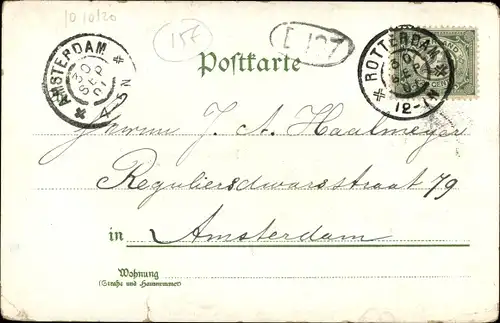 10 10/20
157
E 107
AMSTERDAM
30
SEP
4-5N
Postkarte
ROTTERDAM
30
SEP
12-1N
J. A. Haalmeyer
Reguliersdwarsstraat 79
in Amsterdam
Wohnung
(Straße und Hausnummer)